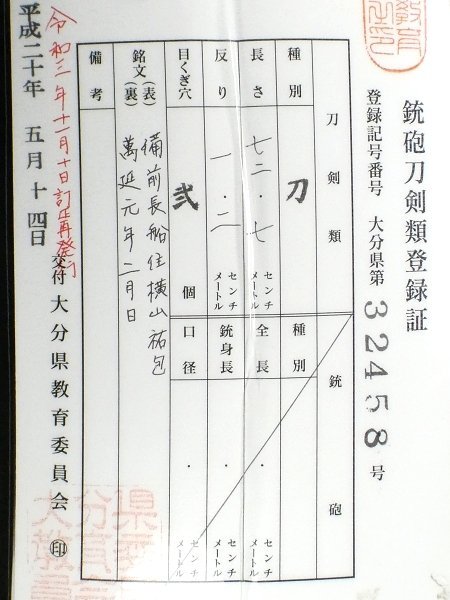 銃砲刀剣類登録証
登録記号番号 大分県第 32458 号
刀剣類
種別 刀
長さ 七二.七 センチメートル
反り 一.二 センチメートル
目くぎ穴 弐 個
銘文(表) 備前長船住横山祐包
(裏) 萬延元年二月日
備考
銃砲
種別
全長 . センチメートル
銃身長 . センチメートル
口径 . センチメートル
令和三年十一月十日訂正再発行
平成二十年 五月十四日
交付 大分県教育委員会 ㊞